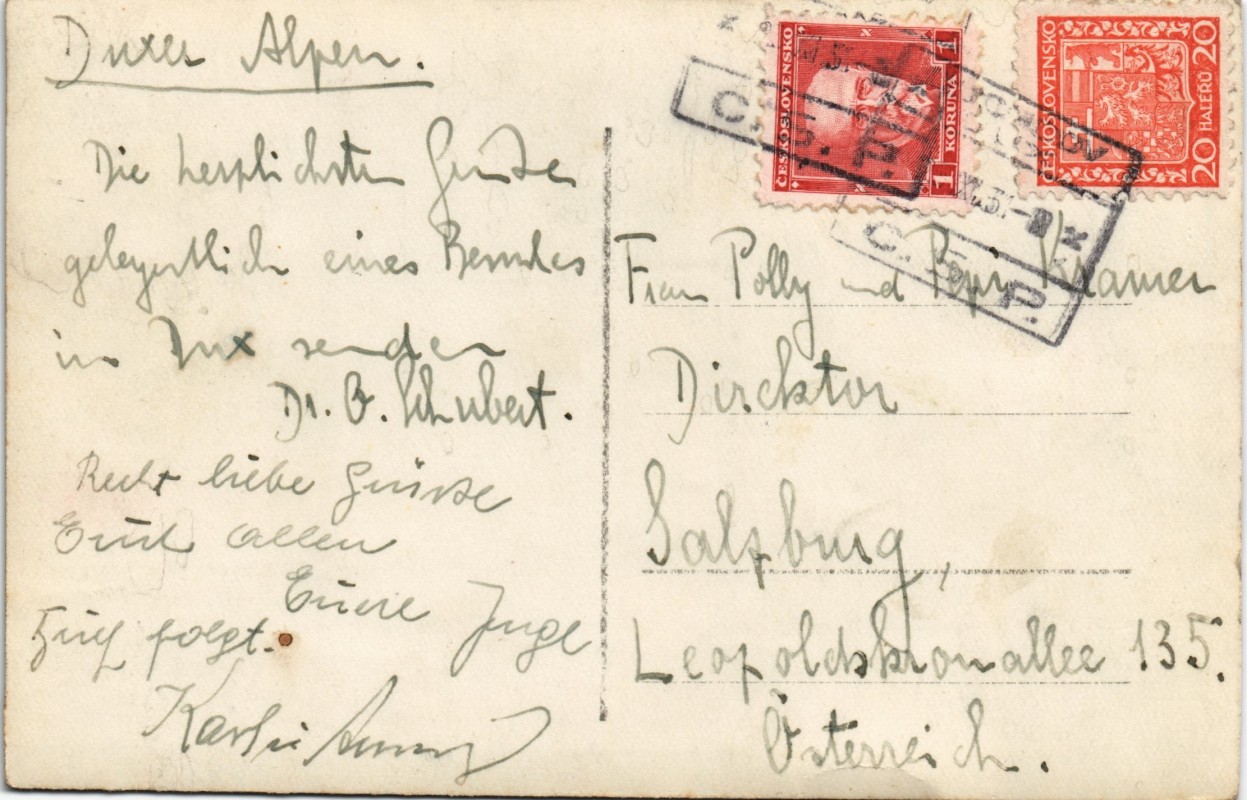 Duxer Alpen.
Die herzlichsten Grüße
gelegentlich eines Besuches
in Dux senden
Dr. O. Schubert.
Recht liebe Grüsse
Euch allen
Euere Inge
folgt.
ČESKOSLOVENSKO
1 KORUNA 1
ČESKOSLOVENSKO
20 HALERŮ 20
C. S. P.
C. S. P.
Frau Polly und Pepi Kramer
Direktor
Salzburg,
Leopoldskronallee 135.
Österreich.